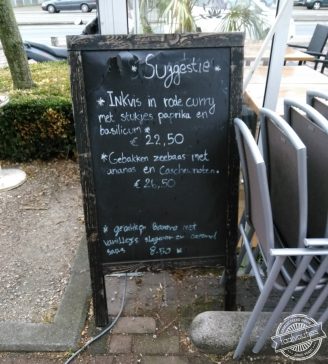 * Suggestie *
* INKvis in rode curry
met stukjes paprika en
basilicum *
€ 22,50
* Gebakken zeebaas met
ananas en Cashewnoten.
€ 26,50
* gebakken Banana met
vanilleijs slagroom en caramel
saus 8.50 *